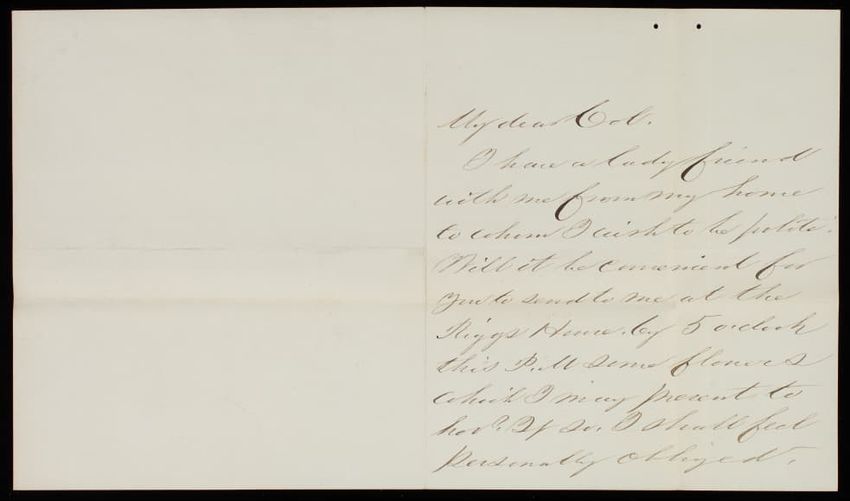 My dear Col.
I have a lady friend
with me from my home
to whom I wish to be polite.
Will it be convenient for
you to send to me at the
Riggs House, by 5 o'clock
this P.M some flowers
which I may present to
her? If so, I shall feel
personally obliged.